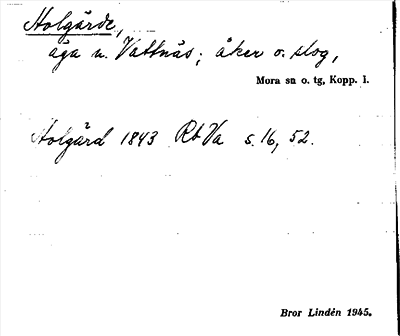 Holgärde,
äga n. Vattnäs; åker o. slog,
Mora sn o. tg, Kopp. l.
Holgärd 1843 Rb Va s. 16, 52.
Bror Lindén 1945.